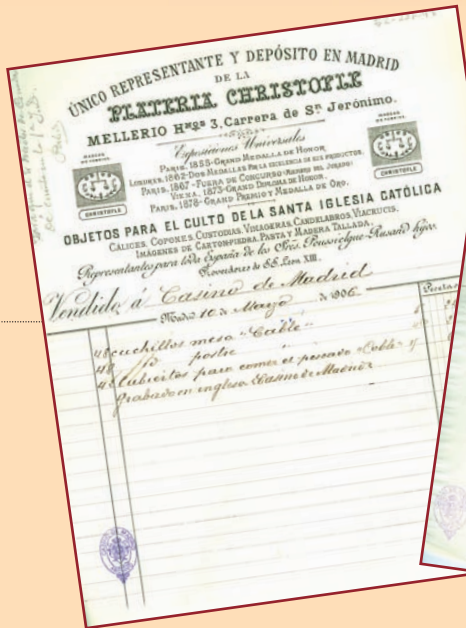 ÚNICO REPRESENTANTE Y DEPÓSITO EN MADRID
DE LA
PLATERIA CHRISTOFLE
MELLERIO Hnos 3, Carrera de Sn Jerónimo.
MARCAS DE FABRICA
CHRISTOFLE
Exposiciones Universales
PARIS, 1855-GRAND MEDALLA DE HONOR.
LONDRES, 1862-DOS MEDALLAS POR LA EXCELENCIA DE SUS PRODUCTOS.
PARIS, 1867-FUERA DE CONCURSO (MIEMBRO DEL JURADO)
VIENA, 1873-GRAND DIPLOMA DE HONOR.
PARIS, 1878-GRAND PREMIO Y MEDALLA DE ORO.
MARCAS DE FABRICA
CHRISTOFLE
OBJETOS PARA EL CULTO DE LA SANTA IGLESIA CATÓLICA
CÁLICES, COPONES, CUSTODIAS, VINAGERAS, CANDELABROS, VIACRUCIS.
IMÁGENES DE CARTON-PIEDRA, PASTA Y MADERA TALLADA.
Representantes para toda España de los Sres. Poussielgue-Rusand hijos.
Proveedores de SS. Leon XIII.
Vendido á Casino de Madrid
Madrid 10 de Marzo de 1906
Pesetas
48 cuchillos mesa "Cable"
48 postre
48 Cubiertos para comer el pescado "Cable"
grabado en inglesa Casino de Madrid